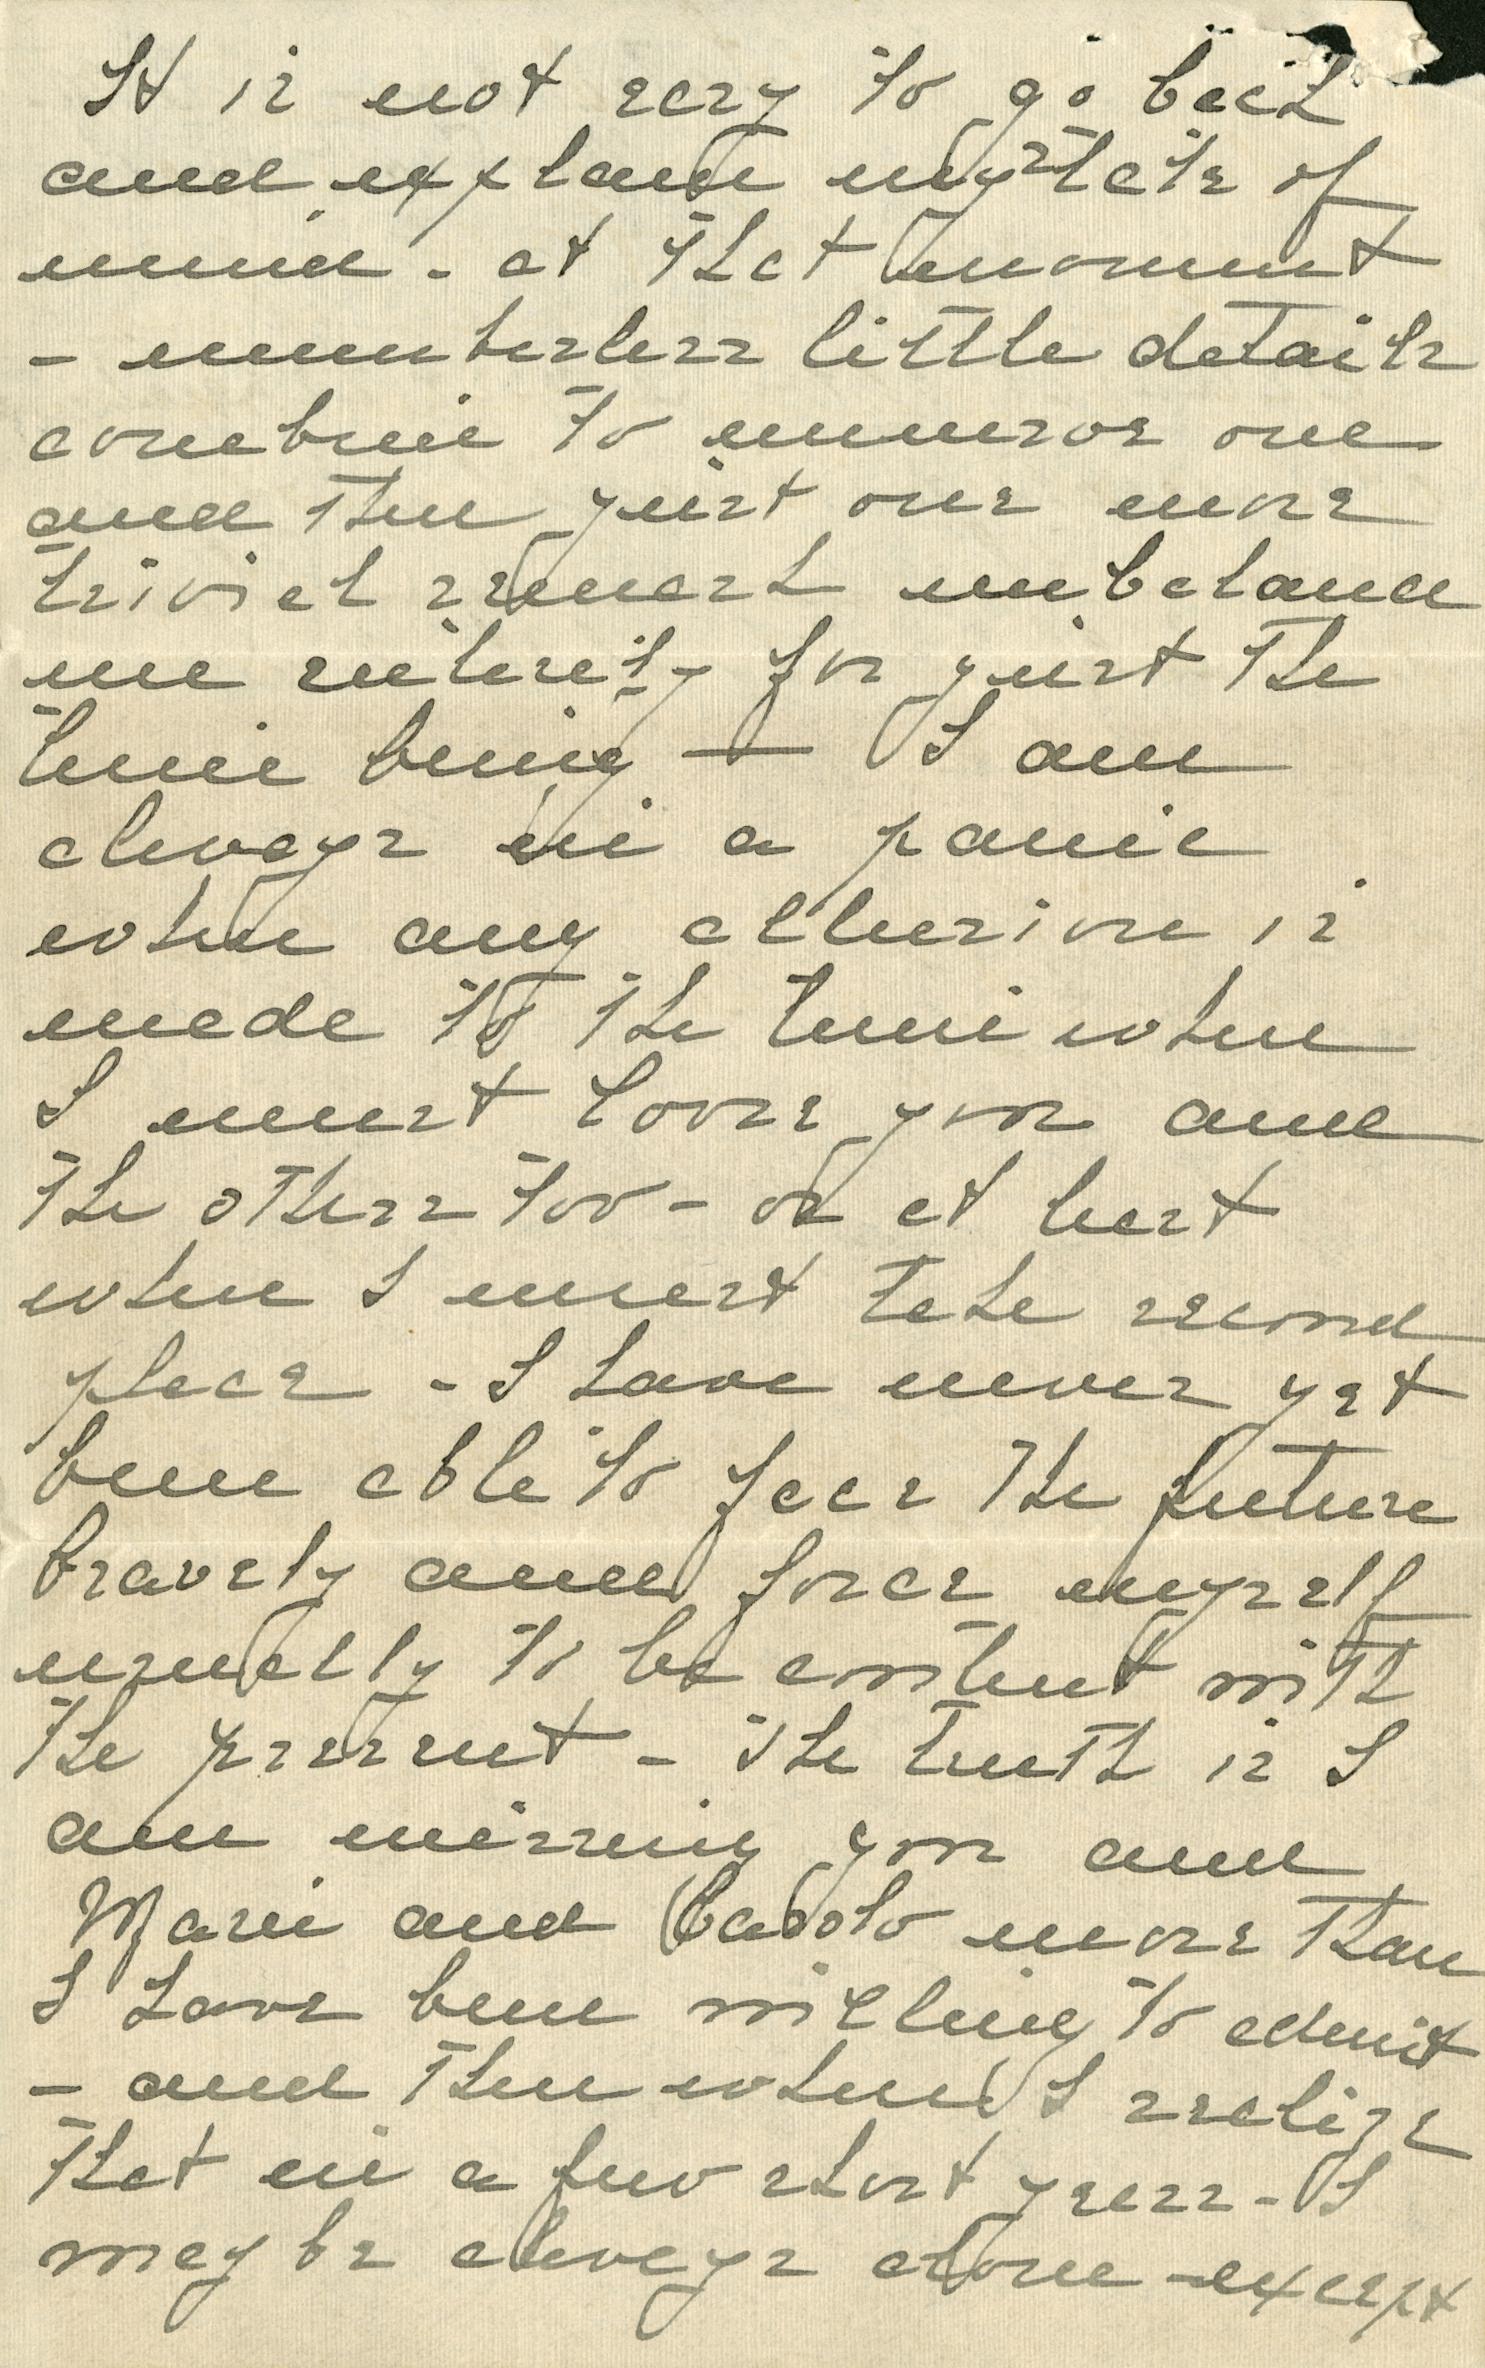 It is not easy to go back
and explain my state of
mind - at that moment
- numberless little details
combine to unnerve one
and then just one more
trivial remark unbalanced
me entirely for just the
time being — I am
always in a panic
when any allusion is
made to the time when
I must loose you and
the others too - or at least
when I must take second
place - I have never yet
been able to face the future
bravely and force myself
usually to be content with
the present - The truth is I
am missing you and
Marie and more than
I have been willing to admit
- and then when I realize
that in a few short years - I
may be always alone - except